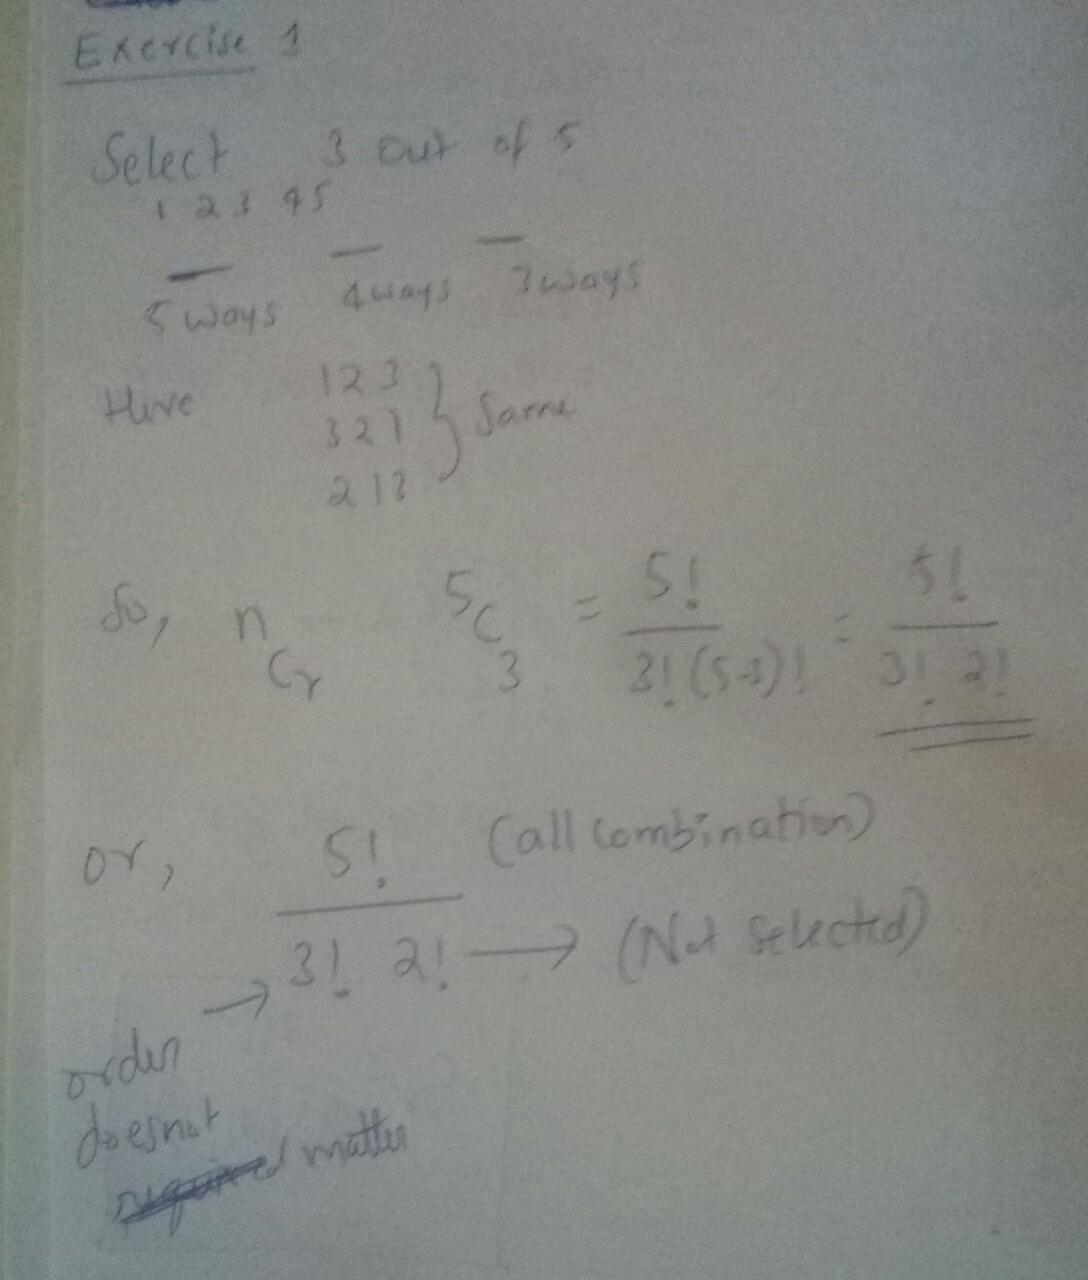 Exercise 1
Select 3 out of 5
1 2 3 4 5
5 ways 4 ways 3 ways
Here 1 2 3
3 2 1 } Same
2 1 3
So, n C r 5 C 3 = 5! / 3! (5-3)! = 5! / 3! 2!
or, 5! (all combination)
3! 2! → (Not selected)
order →
doesnot
matter